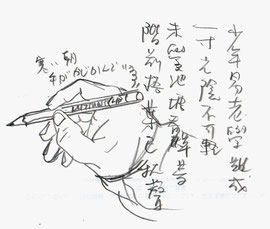 少年易老學難成
一寸光陰不可軽
未覚池塘春草夢
階前梧葉已秋聲
寒い朝
手がかじかんでいる